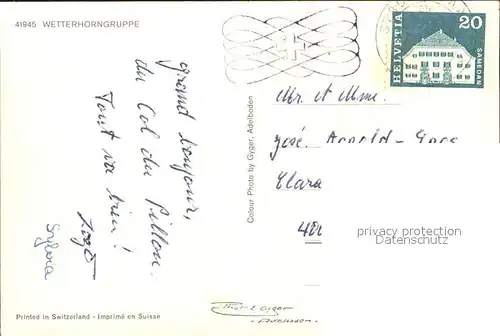 41945 WETTERHORNGRUPPE
20
HELVETIA
SAMEDAN
grand bonjour,
du Col du Pillon.
Tout va bien!
Sylvia
Colour Photo by Gyger, Adelboden
Mr. et Mme.
José Arnold-
Clara
privacy protection
Datenschutz
Printed in Switzerland - Imprimé en Suisse
Gyger